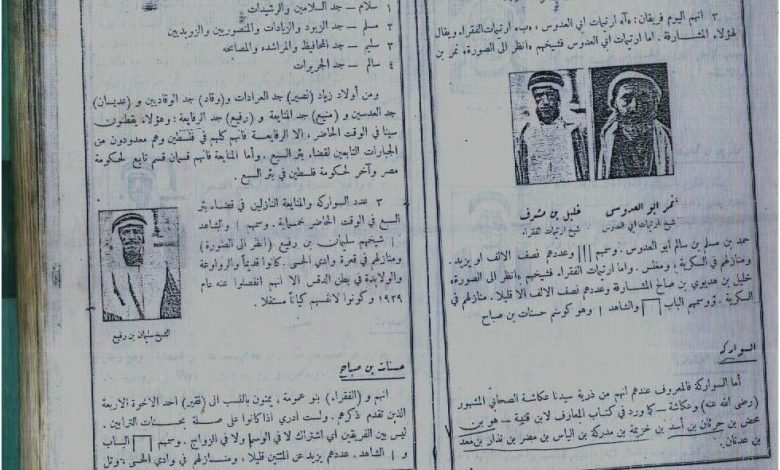 ٣ انهم اليوم فريقان: «آ» ارتيات ابي العدوس، «ب» ارتيات الفقراء ويقال
لهؤلاء المشارفة. اما ارتيات ابي العدوس فشيخهم «انظر الى الصورة» نمر بن
نمر ابو العدوسي
شيخ ارتيات ابي العدوس
خليل بن مشرف
شيخ ارتيات الفقراء
حمد بن مسلم بن سالم ابو العدوس. وسمهم ||| وعددهم نصف الالف او يزيد.
ومنازلهم في السكرية؛ ومغلس. واما ارتيات الفقراء فشيخهم «انظر الى الصورة»
خليل بن هديوي بن صالح المشارفة وعددهم نصف الالف الا قليلا. منازلهم في
السكرية. ووسمهم الباب والشاهد | وهو كوسم حسنات بن صباح
السواركه
أما السواركة فالمعروف عندهم انهم من ذرية سيدنا عكاشة الصحابي المشهور
(رضى الله عنه) وعكاشة – كما ورد في كتاب المعارف لابن قتيبة – هو بن
محض بن حرثان بن أسد بن خزيمة بن مدركة بن الياس بن مضر بن نذار بن معد
بن عدنان.
١ سلام – جد السلامين والرشيدات
٢ مسلم – جد الزيود والزيادات والمنصوريين والزويديين
٣ سليم – جد المحافيظ والمراشده والمصابحه
٤ سالم – جد الجريرات
ومن أولاد زياد (نصير) جد العرادات و(وقاد) جد الوقاديين و (عديسان)
جد العدسين و (منيع) جد المنايعة و (رفيع) جد الرفايعة: وهؤلاء يقطنون
سينا في الوقت الحاضر، الا الرفايعة فانهم كلهم في فلسطين وهم معدودون من
الجبارات التابعين لقضاء بئر السبع. وأما المنايعة فانهم قسمان قسم تابع لحكومة
مصر وآخر لحكومة فلسطين في بئر السبع.
٣ عدد السواركه والمنايعة النازلين في قضاء بئر
السبع في الوقت الحاضر خمسماية. وسمهم | والشاهد
| شيخهم سليمان بن رفيع (انظر الى الصورة)
ومنازلهم في قعرة وادي الحسى. كانوا قديماً والرواوعة
والولايدة في بطن الدقس الا انهم انفصلوا عنه عام
١٩٢٩ وكونوا لانفسهم كياناً مستقلا.
الشيخ سليمان بن رفيع
حسنات بن صباح
انهم و (الفقراء) بنو عمومة، يمتون بالنسب الى (فقير) احد الاخوة الاربعة
الذين تقدم ذكرهم. ولست ادري اذا كانوا على صلة بحسنات الترابين.
ليس بين الفريقين اي اشتراك لا في الوسم ولا في الزواج. وسمهم الباب
و | الشاهد. عددهم يزيد عن المئتين قليلا. ومنازلهم في وادي الحسى وتل